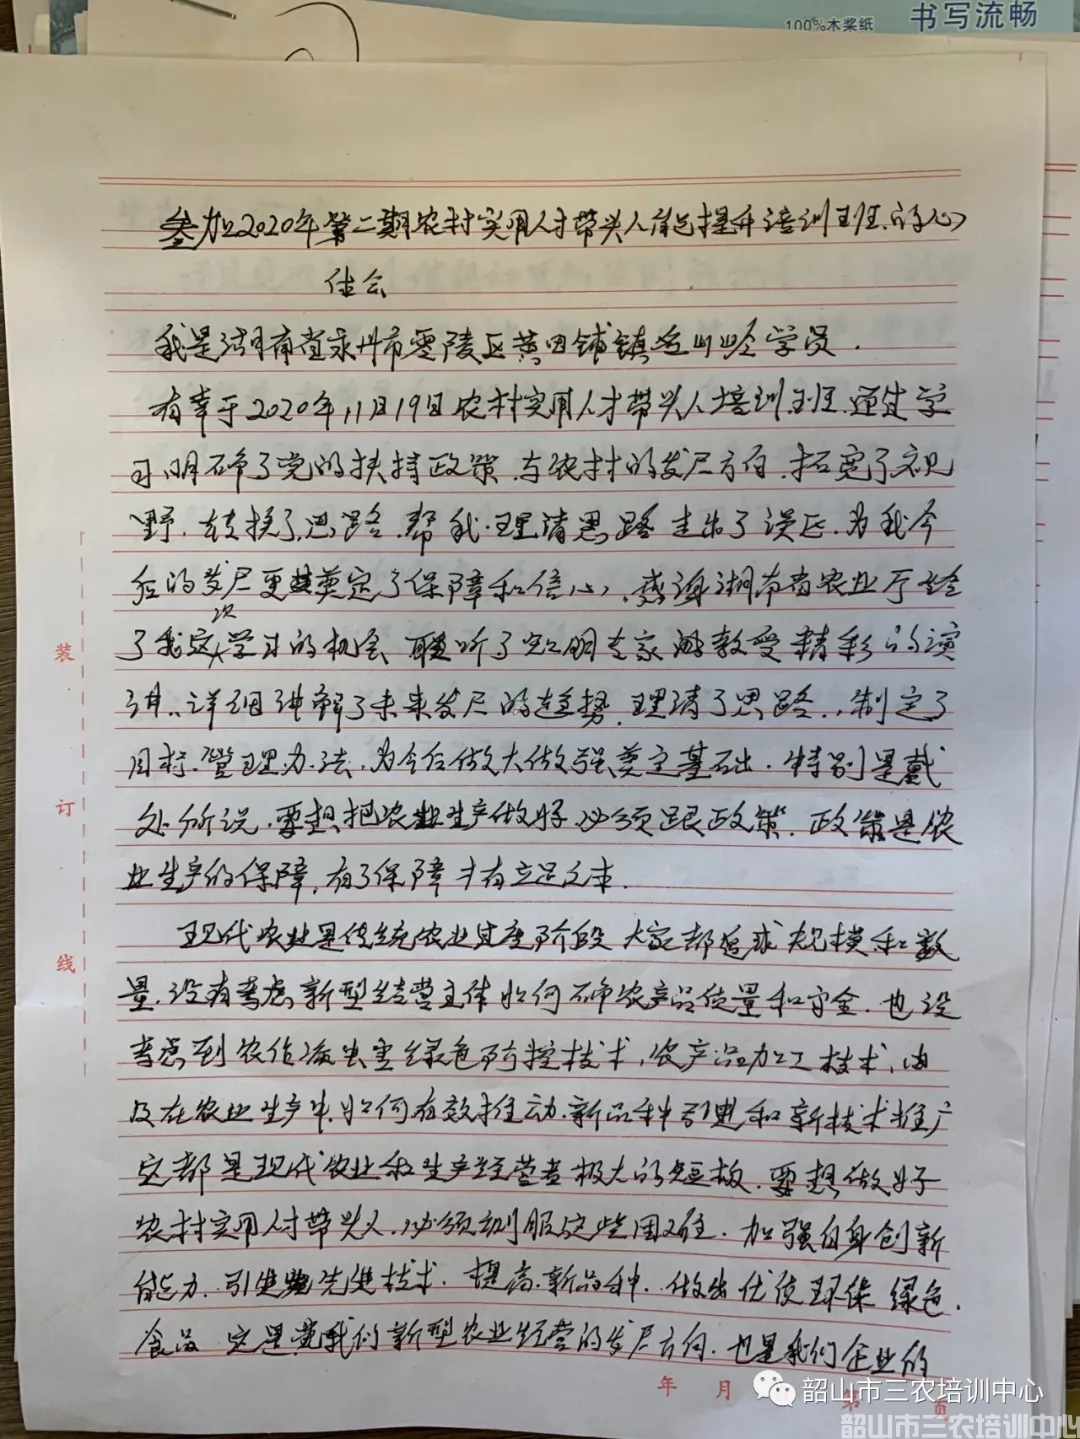 100%木桨纸
书写流畅
参加2020年第二期农村实用人才带头人能力提升培训班的心
体会
我是湖南省永州市零陵区黄田铺镇 学员.
有幸于2020年11月19日农村实用人才带头人培训班.通过学
习明确了党的扶持政策.与农村的发展方向.拓宽了视
野.转换了思路.帮我理清思路走出了误区.为我今
后的发展更奠定了保障和信心.感谢湖南省农业厅给
了我这次学习的机会 聆听了 专家教授精彩的演
讲..详细讲解了未来发展的趋势.理清了思路..制定了
目标.管理办法.为今后做大做强奠定基础.特别是戴
处所说.要想把农业生产做好.必须跟政策.政策是农
业生产的保障,有了保障才有立足之本.
现代农业是传统农业过度阶段 大家都追求规模和数
量.没有考虑新型经营主体如何确农产品质量和安全.也没
考虑到农作病虫害绿色防控技术,农产品加工技术,
及在农业生产中.如何有效推动.新品种引进和新技术推广
这都是现代农业和生产经营者极大的短板.要想做好
农村实用人才带头人.必须刻服这些困难.加强自身创新
能力.引进先进技术.提高新品种.做出优质环保绿色.
食品 这是我们新型农业经营的发展方向.也是我们企业的
装
订
线
年 月
第 页
韶山市三农培训中心
韶山市三农培训中心